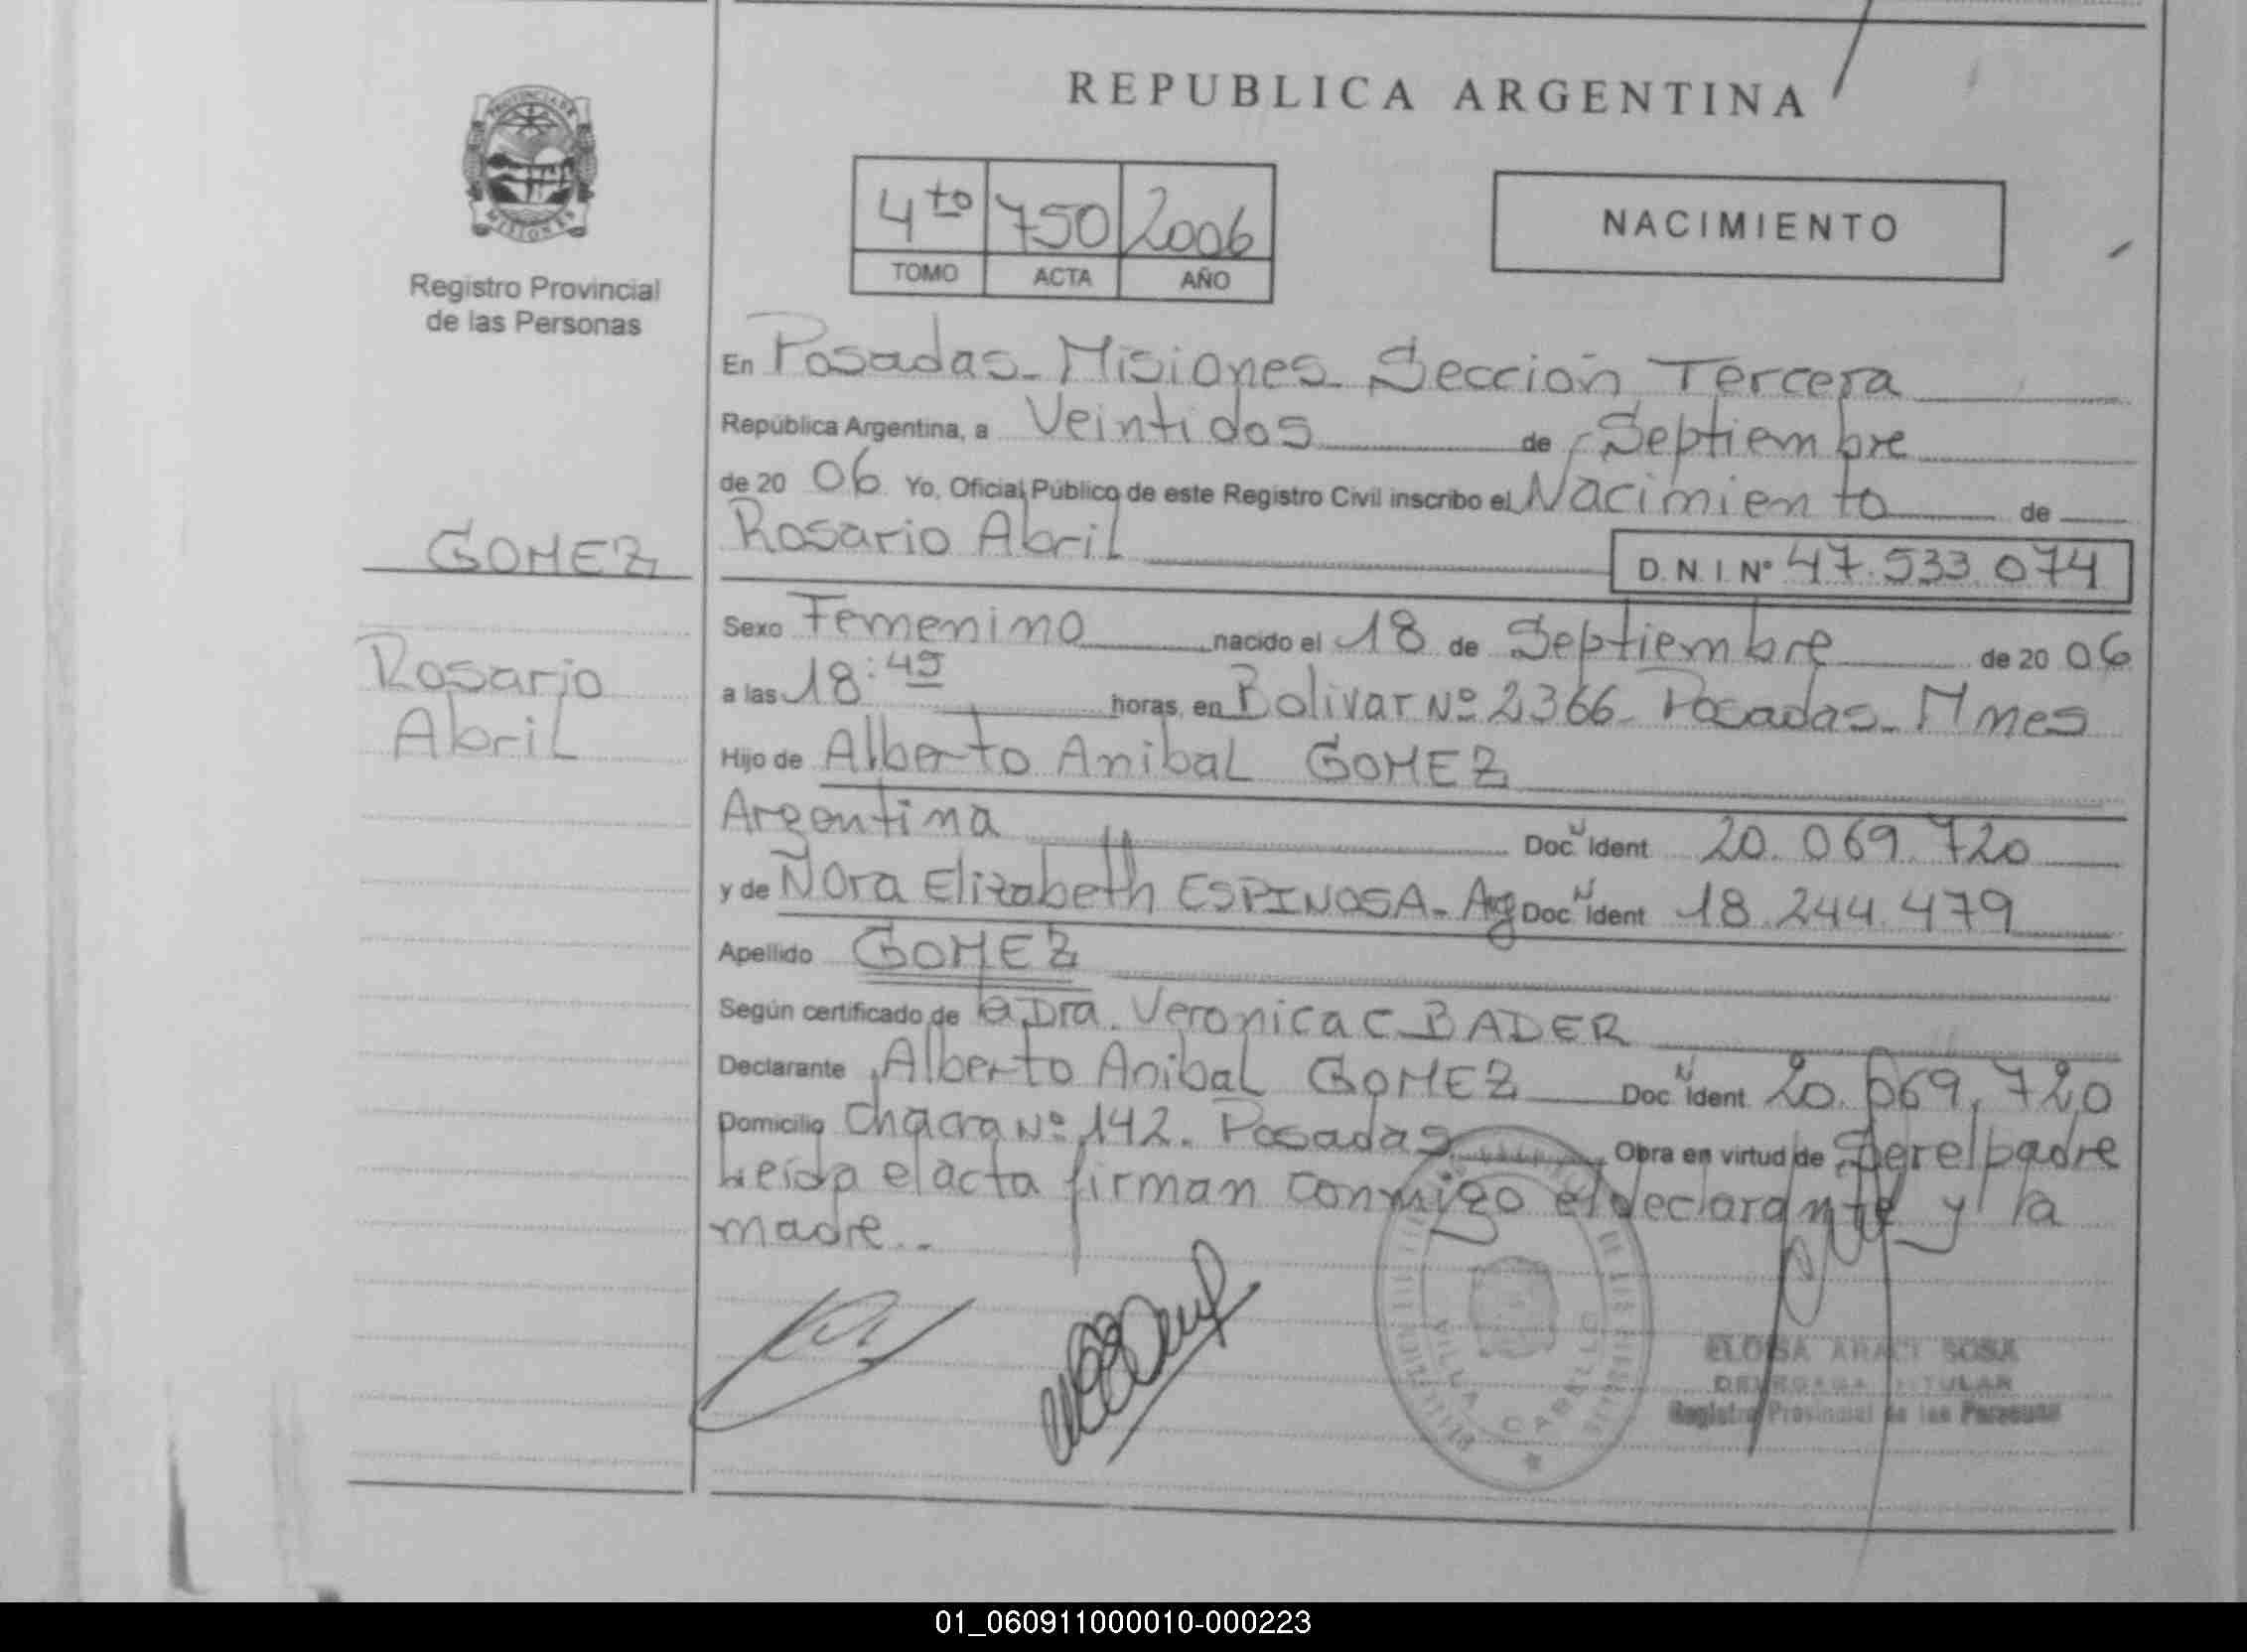 REPUBLICA ARGENTINA
PROVINCIA DE
MISIONES
Registro Provincial
de las Personas
4to 750 2006
TOMO ACTA AÑO
NACIMIENTO
En Posadas - Misiones - Sección Tercera
República Argentina, a Veintidos de Septiembre
de 20 06 Yo, Oficial Público de este Registro Civil inscribo el Nacimiento de
GOMEZ
Rosario Abril
D.N.I. Nº 47.533.074
Sexo Femenino nacido el 18 de Septiembre de 20 06
Rosario
Abril
a las 18:45 horas, en Bolivar Nº 2366 - Posadas - Mnes
Hijo de Alberto Anibal GOMEZ
Argentina Doc. Ident 20.069.720
y de Nora Elizabeth ESPINOSA - Arg Doc. Ident 18.244.479
Apellido GOMEZ
Según certificado de la Dra. Veronica C. BADER
Declarante Alberto Anibal GOMEZ Doc Ident 20.069.720
Domicilio Chacra Nº 142. Posadas Obra en virtud de Ser el padre
Leída el acta firman conmigo el declarante y la
madre..
VILLA CABELLO
ELOISA ARACI SOSA
DELEGADA TITULAR
Registro Provincial de las Personas
01_060911000010-000223